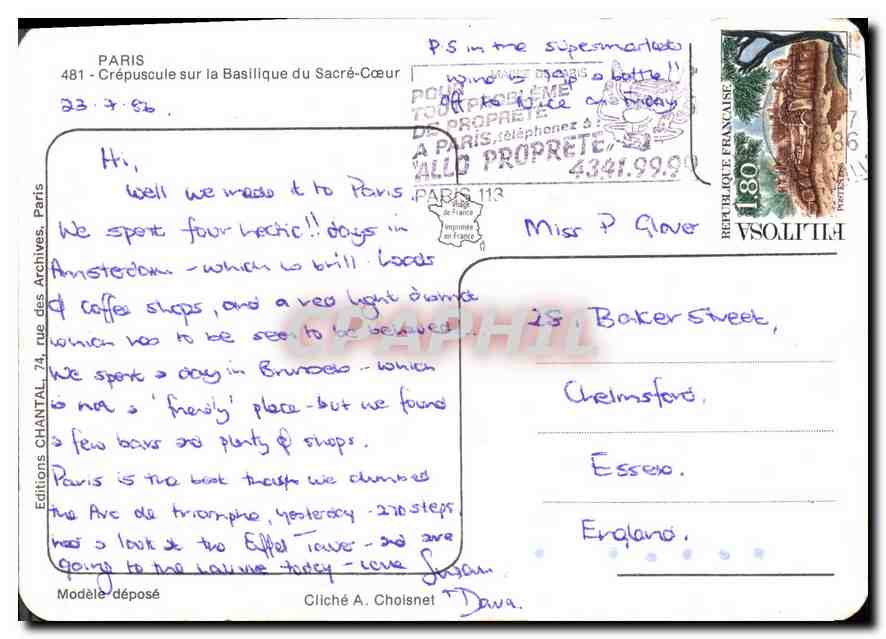 PARIS
481 - Crépuscule sur la Basilique du Sacré-Cœur
23.7.86
P.S in the supermarkets
wine is 30p a bottle!!
Off to Nice on Friday
MAIRE DE PARIS
POUR
TOUT PROBLÈME
DE PROPRETÉ
A PARIS, téléphonez à :
ALLO PROPRETE
4341.99.99
PARIS 113
REPUBLIQUE FRANÇAISE
1,80
POSTES 1986
FILITOSA
Hi,
Well we made it to Paris
We spent four hectic!! days in
Amsterdam - which is brill. Loads
of coffee shops, and a red light district
which has to be seen to be believed.
We spent a day in Brussels - which
is not a 'friendly' place - but we found
a few bars and plenty of shops.
Paris is the best though we climbed
the Arc de triomphe, yesterday - 270 steps.
had a look at the Eiffel Tower - and are
going to the Louvre today - love Susan
+ Dava.
Image
de France
Imprimée
en France
Miss P Glover
28, Baker Street,
Chelmsford.
Essex.
England.
CPAPHIL
Editions CHANTAL, 74, rue des Archives, Paris
Modèle déposé
Cliché A. Choisnet